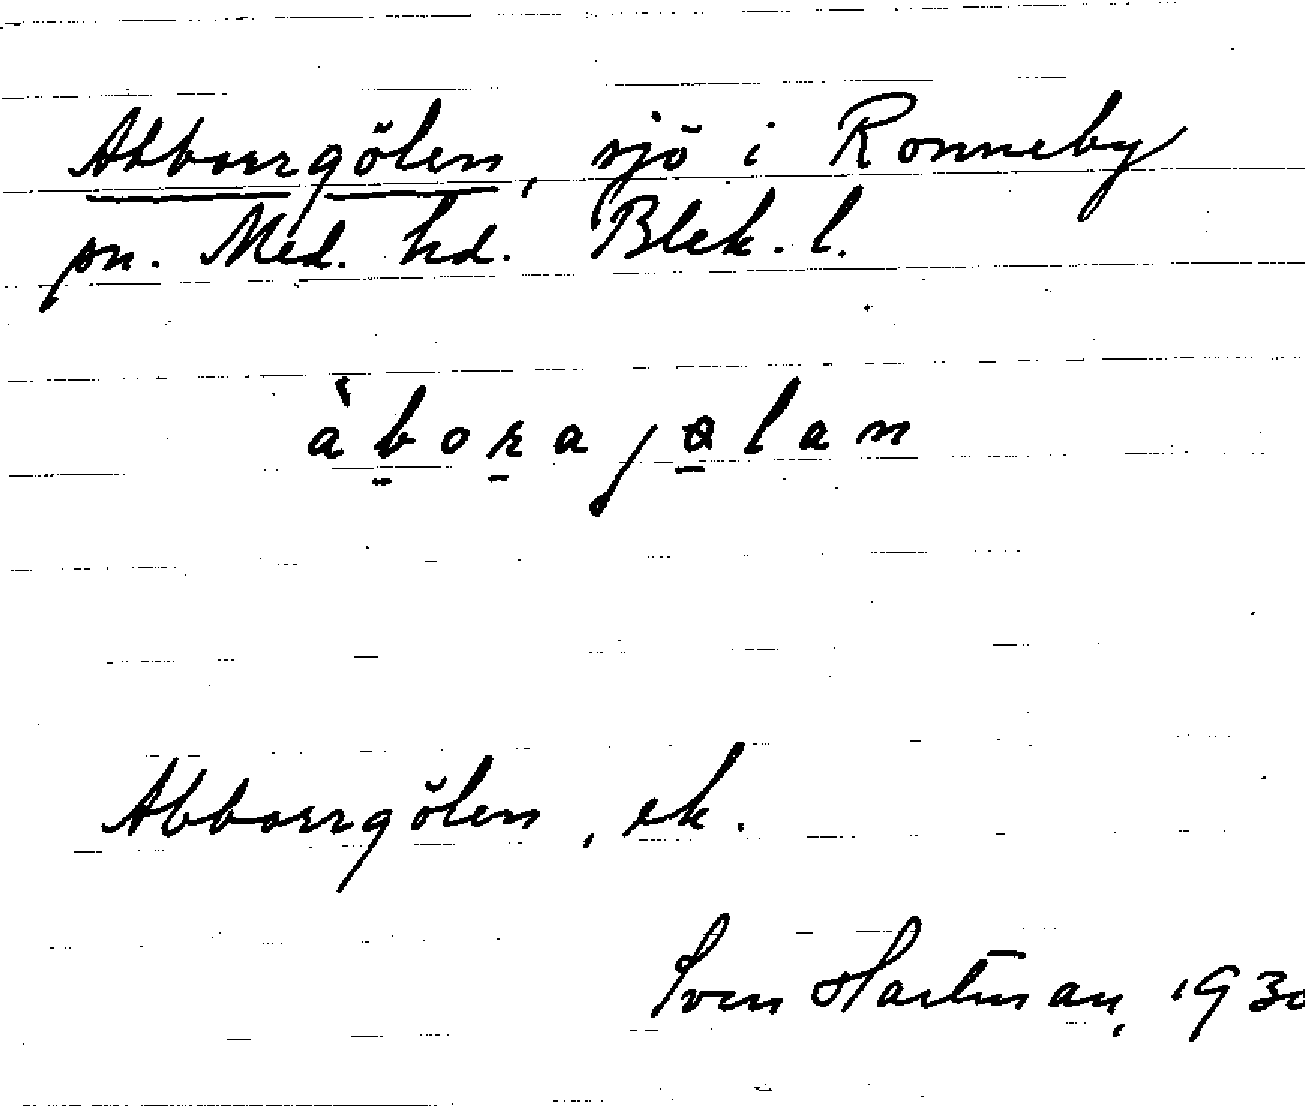 Abborrgölen, sjö i Ronneby
sn. Med. hd. Blek. l.
àborajølan
Abborrgölen, ek.
Sven Hartman, 1930